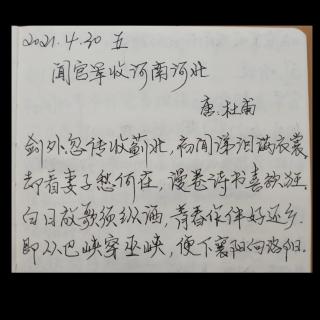 2021.4.30 五
闻官军收河南河北
唐.杜甫
剑外忽传收蓟北,初闻涕泪满衣裳
却看妻子愁何在,漫卷诗书喜欲狂.
白日放歌须纵酒,青春作伴好还乡.
即从巴峡穿巫峡,便下襄阳向洛阳.